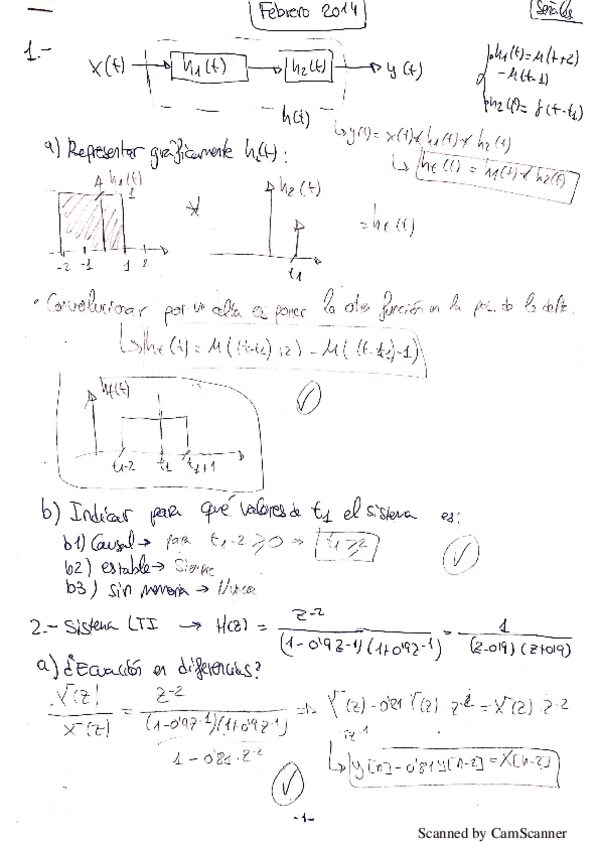 Febrero 2014
Señales
1.-
x(t) h1(t) h2(t) y(t)
h1(t)=μ(t+2)
-μ(t-1)
h2(t)=δ(t-t1)
h(t)
↳ y(t) = x(t)*h1(t)*h2(t)
a) Representar gráficamente ht(t):
↳ ht(t) = h1(t)*h2(t)
h1(t) 1 * h2(t) = ht(t)
-2 -1 1 2 t1
· Convolucionar por una delta es poner la otra función en la pos. de la delta.
↳ ht(t) = μ((t-t1)+2) - μ((t-t1)-1)
ht(t)
t1-2 t1 t1+1
b) Indicar para qué valores de t1 el sistema es:
b1) Causal → para t1-2≥0 ⇒ t1≥2
b2) estable → Siempre
b3) sin memoria → Nunca
2.- Sistema LTI → H(z) = z-2 / (1-0'9z-1)(1+0'9z-1) = 1 / (z-0'9)(z+0'9)
a) ¿Ecuación en diferencias?
Y(z) / X(z) = z-2 / (1-0'9z-1)(1+0'9z-1) ⇒ Y(z)-0'81 Y(z) z-2 = X(z) z-2
1-0'81·z-2
z-1
↳ y[n]-0'81y[n-2]=x[n-2]
-1-
Scanned by CamScanner